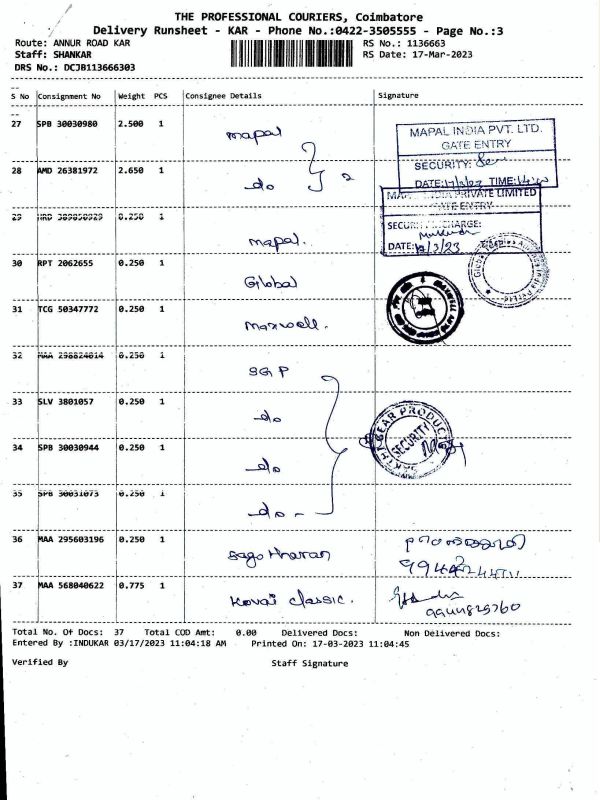 THE PROFESSIONAL COURIERS, Coimbatore
Delivery Runsheet - KAR - Phone No.:0422-3505555 - Page No.:3
Route: ANNUR ROAD KAR RS No.: 1136663
Staff: SHANKAR RS Date: 17-Mar-2023
DRS No.: DCJB113666303
S No Consignment No Weight PCS Consignee Details Signature
27 SPB 30030980 2.500 1 mapal
MAPAL INDIA PVT. LTD.
GATE ENTRY
SECURITY:
28 AMD 26381972 2.650 1 do 2
DATE: 17/3/23 TIME:
PRIVATE LIMITED
GATE ENTRY
29 0.250 1 mapal.
SECURITY INCHARGE:
DATE: 17/3/23
30 RPT 2062655 0.250 1 Global
31 TCG 50347772 0.250 1 Maxwell.
32 MAA 298824014 0.250 1 SGP
33 SLV 3801057 0.250 1 do
SAKTHI GEAR PRODUCTS
SECURITY
34 SPB 30030944 0.250 1 do
35 SPB 30031073 0.250 1 do
36 MAA 295603196 0.250 1
37 MAA 568040622 0.775 1 Kovai classic.
Total No. Of Docs: 37 Total COD Amt: 0.00 Delivered Docs: Non Delivered Docs:
Entered By :INDUKAR 03/17/2023 11:04:18 AM Printed On: 17-03-2023 11:04:45
Verified By Staff Signature